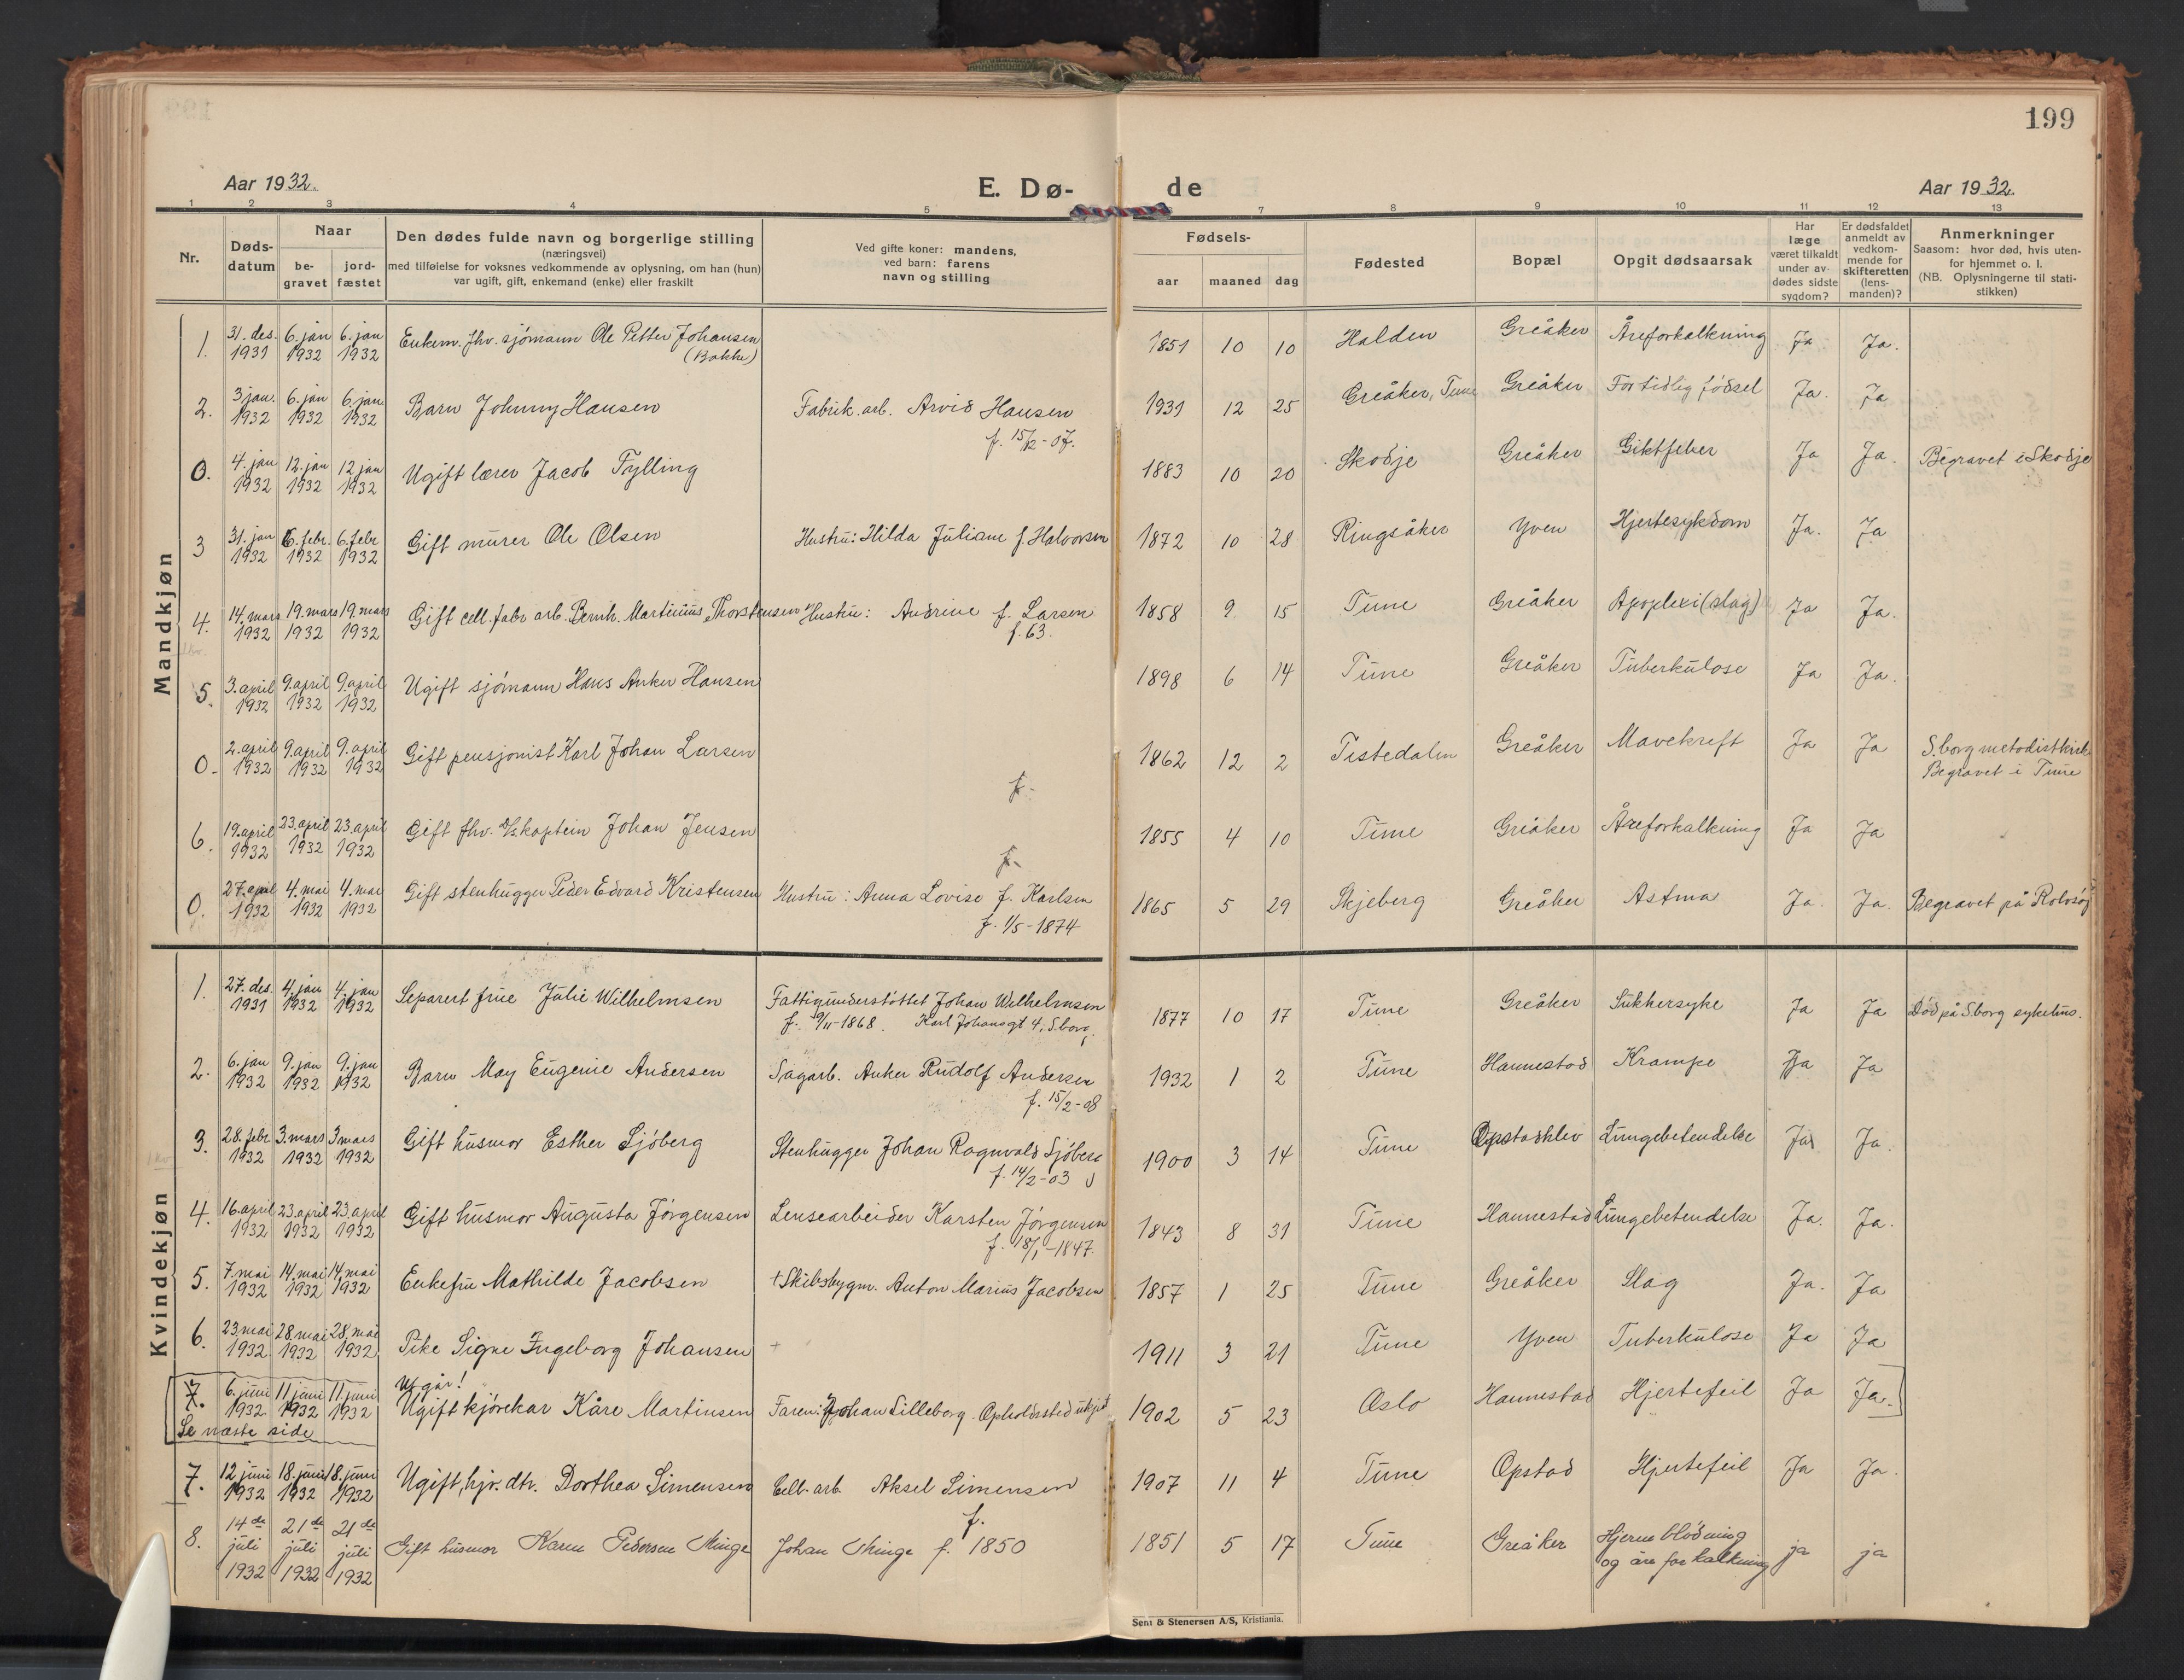 199
Aar 1932.
E. Dø-
de
Aar 1932.
1 2 3 4 5 7 8 9 10 11 12 13
Nr.
Døds-
datum
Naar
be-
gravet
jord-
fæstet
Den dødes fulde navn og borgerlige stilling
(næringsvei)
med tilføielse for voksnes vedkommende av oplysning, om han (hun)
var ugift, gift, enkemand (enke) eller fraskilt
Ved gifte koner: mandens,
ved barn: farens
navn og stilling
Fødsels-
aar maaned dag
Fødested
Bopæl
Opgit dødsaarsak
Har
læge
været tilkaldt
under av-
dødes sidste
sygdom?
Er dødsfaldet
anmeldt av
vedkom-
mende for
skifteretten
(lens-
manden)?
Anmerkninger
Saasom: hvor død, hvis uten-
for hjemmet o. l.
(NB. Oplysningerne til stati-
stikken)
Mandkjøn
1. 31. des. 1931 6. jan 1932 6. jan 1932 Enkem. fhv. sjømann Ole Petter Johansen (Bakke) 1851 10 10 Halden Greåker Åreforkalkning Ja Ja.
2. 3 jan. 1932 6. jan 1932 6. jan. 1932 Barn Johnny Hansen Fabrik. arb. Arvid Hansen f. 15/12-07. 1931 12 25 Greåker, Tune Greåker For tidlig fødsel Ja. Ja
0. 4. jan 1932 12. jan 1932 12 jan 1932 Ugift lærer Jacob Tylling 1883 10 20 Skodje Greåker Giktfeber Ja Ja. Begravet i Skodje
3 31. jan 1932 6. febr. 1932 6. febr 1932 Gift murer Ole Olsen Hustru: Hilda Juliane f. Halvorsen 1872 10 28 Ringsåker Yven Hjertesykdom Ja. Ja
4. 14. mars 1932 19. mars 1932 19 mars 1932 Gift cell. fabr arb. Bernh. Martinius Thorstensen Hustru: Andrine f. Larsen f. 63. 1858 9 15 Tune Greåker Apoplexi (slag) Ja Ja.
5. 3. april 1932 9. april 1932 9. april 1932 Ugift sjømann Hans Anker Hansen 1898 6 14 Tune Greåker Tuberkulose Ja Ja.
0. 2. april 1932 9. april 1932 9. april 1932 Gift pensjonist Karl Johan Larsen f. 1862 12 2 Tistedalen Greåker Mavekreft Ja Ja S.borg metodistkirk. Begravet i Tune
6. 19. april 1932 23. april 1932 23. april 1932 Gift fhv. D/S kaptein Johan Jensen f. 1855 4 10 Tune Greåker Åreforkalkning Ja Ja
0. 27. april 1932 4. mai 1932 4. mai 1932 Gift stenhugger Peder Edvard Kristensen Hustru: Anna Lovise f. Karlsen f. 1/5-1874 1865 5 29 Skjeberg Greåker Astma Ja. Ja. Begravet på Rolvsøy
Kvindekjøn
1. 27. des. 1931 4. jan 1932 4. jan 1932 Separert frue Julie Wilhelmsen Fattigunderstøttet Johan Wilhelmsen f. 9/11-1868. Karl Johansgt 4, S.borg. 1877 10 17 Tune Greåker Sukkersyke Ja Ja Død på S.borg sykehus.
2. 6. jan 1932 9. jan 1932 9. jan 1932 Barn May Eugenie Andersen Sagarb. Anker Rudolf Andersen f. 15/2-08 1932 1 2 Tune Hannestad Krampe Ja Ja
3. 28. febr. 1932 3. mars 1932 3 mars 1932 Gift husmor Esther Sjöberg Stenhugger Johan Ragnvald Sjöberg f. 14/2-03 1900 3 14 Tune Opstadklev Lungebetendelse Ja Ja.
4. 16. april 1932 23. april 1932 23. april 1932 Gift husmor Augusta Jörgensen Lensearbeider Karsten Jörgensen f. 18/1-1847. 1843 8 31 Tune Hannestad Lungebetendelse Ja. Ja.
5. 7. mai 1932 14. mai 1932 14. mai 1932 Enkefru Mathilde Jacobsen † Skibsbygm. Anton Marius Jacobsen 1857 1 25 Tune Greåker Slag Ja. Ja
6. 23. mai 1932 28. mai 1932 28. mai 1932 Pike Signe Ingeborg Johansen + 1911 3 21 Tune Yven Tuberkulose Ja Ja
Utgår!
7. 6. juni 1932 11. juni 1932 11. juni 1932 Ugift kjørekar Kåre Martinsen Faren: Johan Lilleborg. Opholdssted ukjent 1902 5 23 Oslo Hannestad Hjertefeil Ja Ja.
Se næste side
7. 12. juni 1932 18. juni 1932 18. juni 1932 Ugift, hjv. dtr. Dorthea Simensen Cell. arb. Aksel Simensen f. 1907 11 4 Tune Opstad Hjertefeil Ja Ja.
8. 14de juli 1932 21de juli 1932 21de juli 1932 Gift husmor Karen Pedersen Skinge Johan Skinge f. 1850 1851 5 17 Tune Greåker Hjerneblødning og åreforkalkning ja ja
Sem & Stenersen A/S, Kristiania.